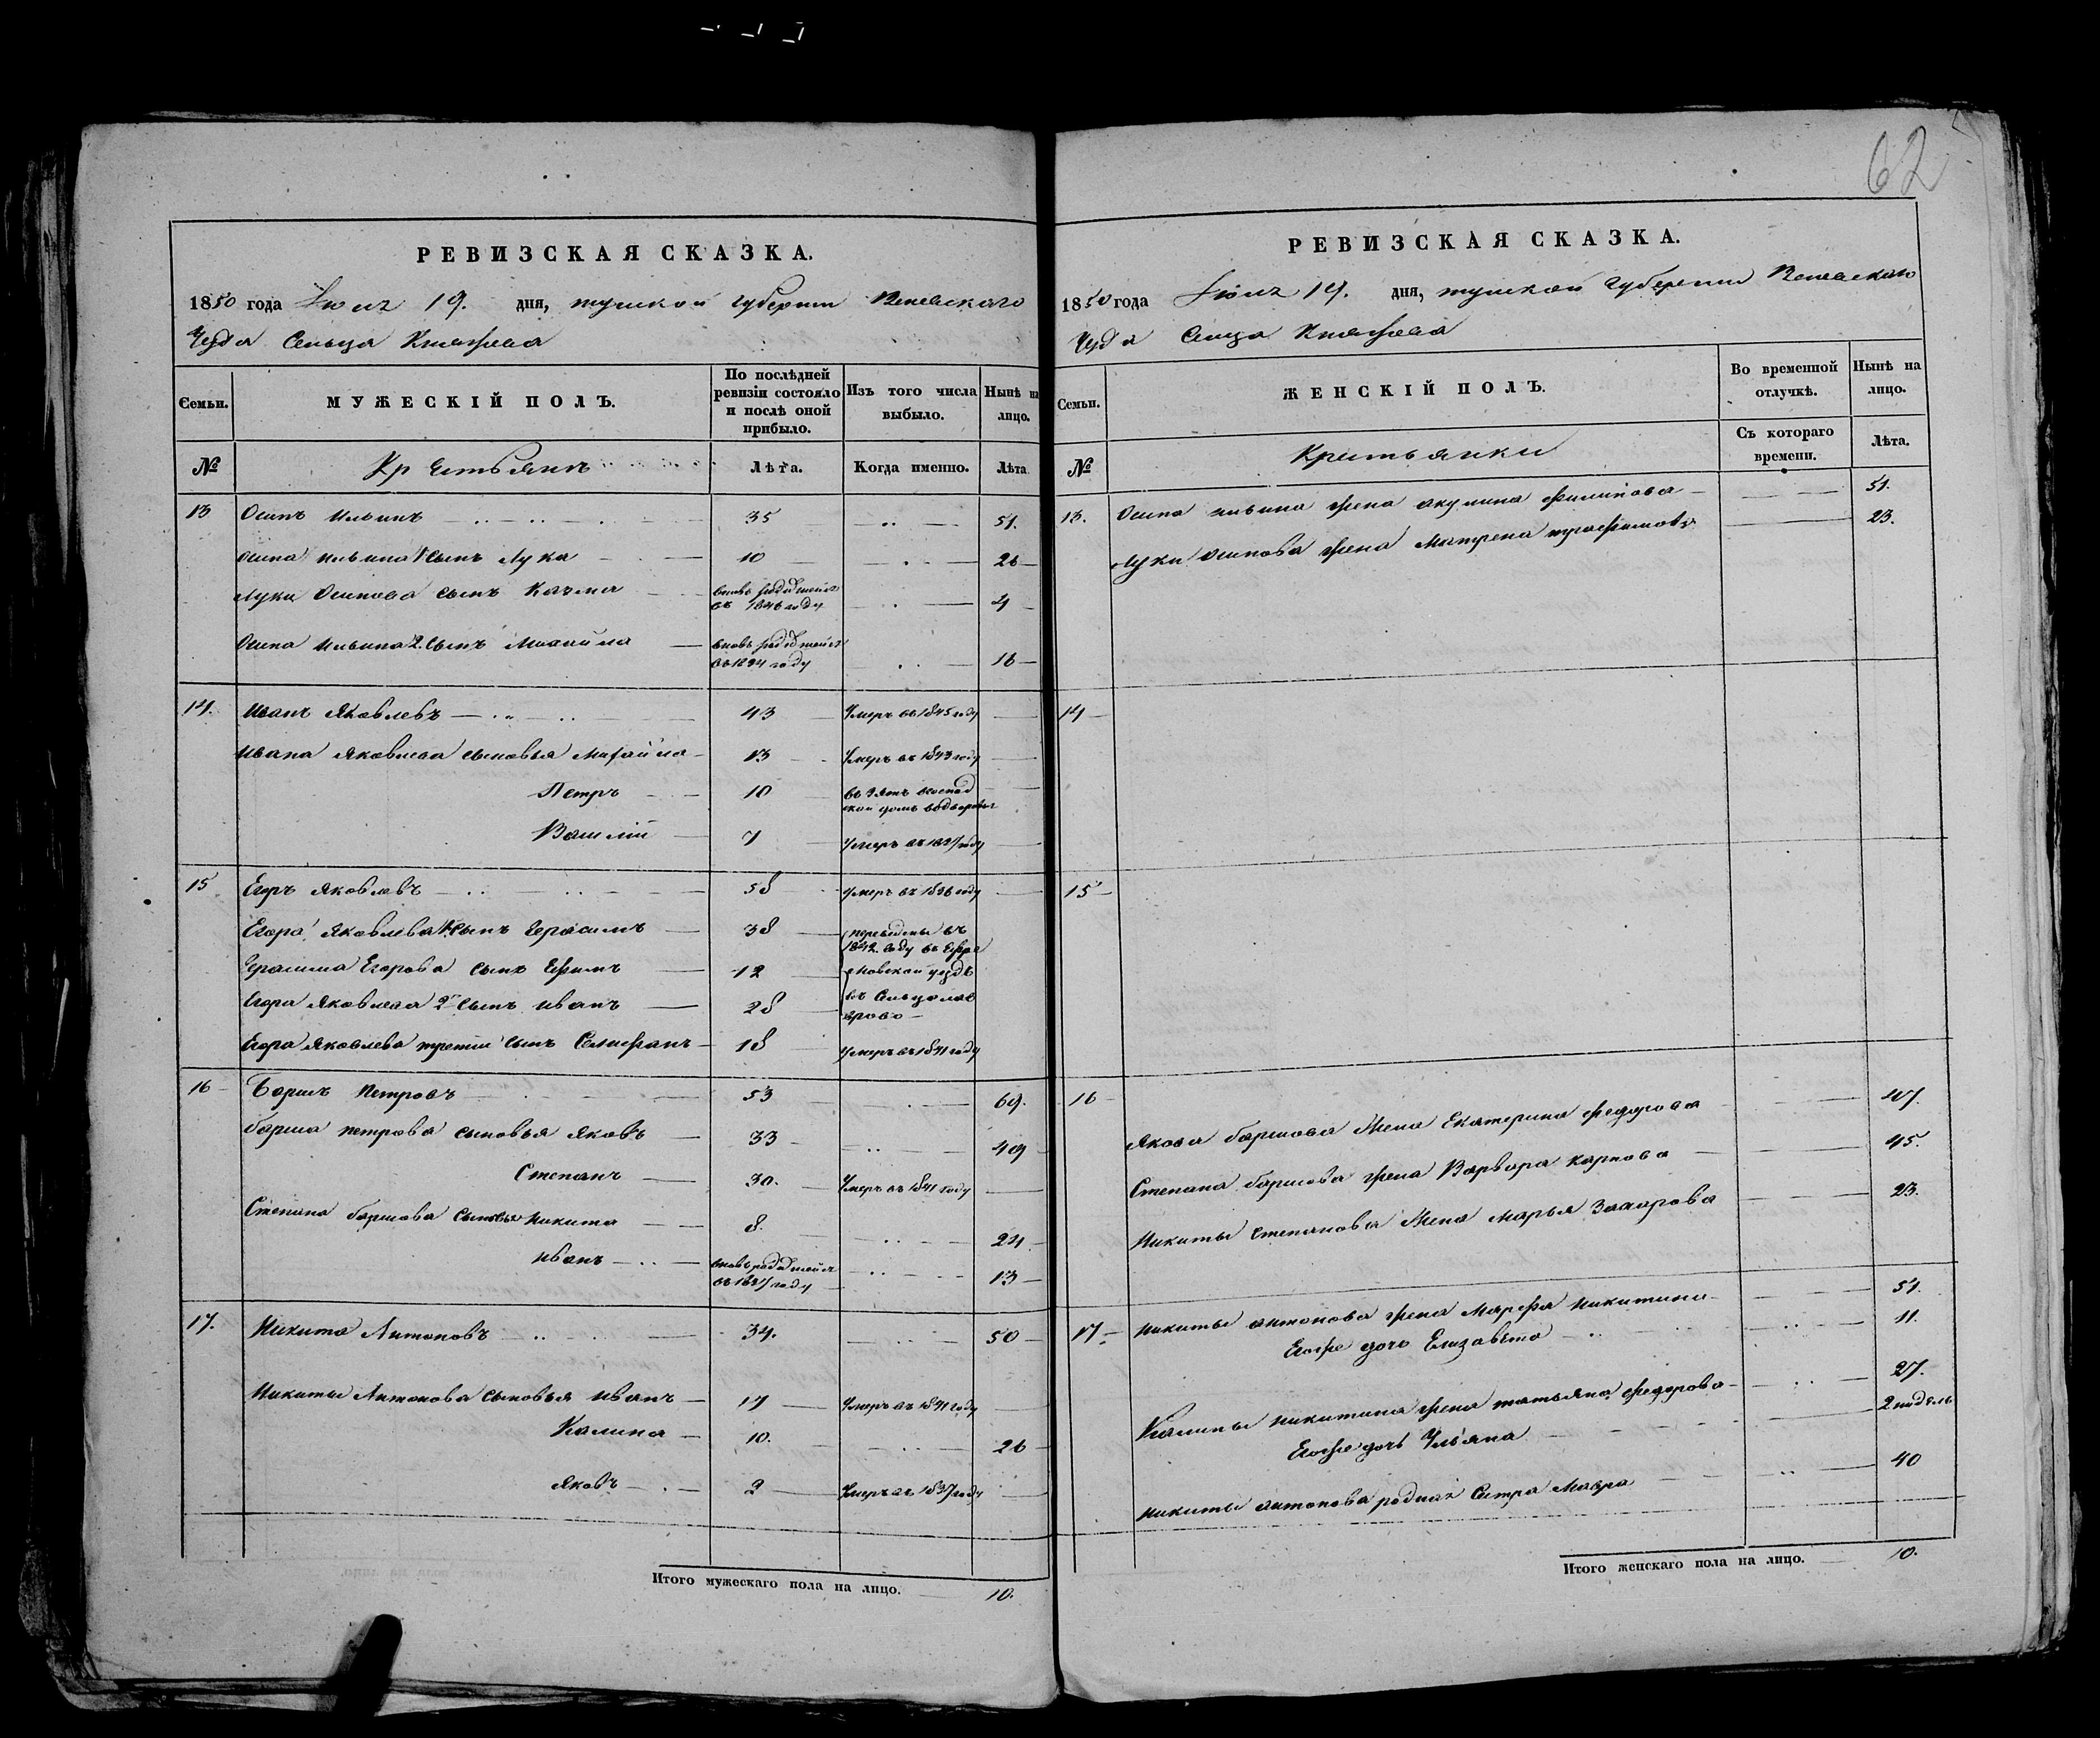 62
РЕВИЗСКАЯ СКАЗКА.
1850 года Июля 19. дня, тульской губернии Веневскаго
Уезда Сельца Княжева
Семьи. МУЖЕСКІЙ ПОЛЪ. По послѣдней ревизіи состояло и послѣ оной прибыло. Изъ того числа выбыло. Нынѣ на лицо.
№ Крестьяне Лѣта. Когда именно. Лѣта
13 Осипъ Ильинъ 35 51.
Осипа Ильина 1 сынъ Лука 10 26
Луки Осипова сынъ Казма вновь рожденный въ 1846 году 4
Осипа Ильина 2. сынъ Михайла вновь рожденный въ 1834 году 16
14. Иванъ Яковлевъ 43 Умеръ въ 1845 году
Ивана Яковлева сыновья Михайла 13 Умеръ въ 1843 году
Петръ 10 въ 1842 во дворовы
Василій 7 умеръ въ 1837 году
15 Егоръ Яковлевъ 58 умеръ въ 1836 году
Егора Яковлева 1 сынъ Герасимъ 38 переведены въ
Герасима Егорова сынъ Ефимъ 12 1842 году въ Ефре
Егора Яковлева 2й сынъ Иванъ 28 мовской уездъ въ Сельцо
Егора Яковлева третий сынъ Селифанъ 18 умеръ въ 1841 году
16 Борисъ Петровъ 53 69.
Бориса петрова сыновья Яковъ 33 49
Степанъ 30. Умеръ въ 1841 году
Степана борисова сыновья Никита 8. 24
Иванъ вновь рожденный въ 1837 году 13
17. Никита Антоновъ 34. 50
Никиты Антонова сыновья Иванъ 14 Умеръ въ 1841 году
Калина 10. 26
Яковъ 2 Умеръ въ 1837 году
Итого мужескаго пола на лицо. 10.
РЕВИЗСКАЯ СКАЗКА.
1850 года Июля 19. дня, тульской губернии Веневскаго
Уезда Сельца Княжева
Семьи. ЖЕНСКІЙ ПОЛЪ. Во временной отлучкѣ. Нынѣ на лицо.
№ Крестьянки Съ котораго времени. Лѣта.
13. Осипа ильина жена акулина филипова 51.
Луки Осипова жена Матрена трофимова 23.
14
15
16
Якова борисова жена Екатерина федорова 47.
Степана борисова жена Варвара карпова 45.
Никиты Степанова жена марья Захарова 23.
17 Никиты антонова жена Марфа никитина 51.
Егоже дочь Елизавѣта 11.
Калины никитина жена татьяна федорова 27.
Егоже дочь Ульяна 2 недѣль
Никиты антонова родная Сестра Мавра 40
Итого женскаго пола на лицо. 10.